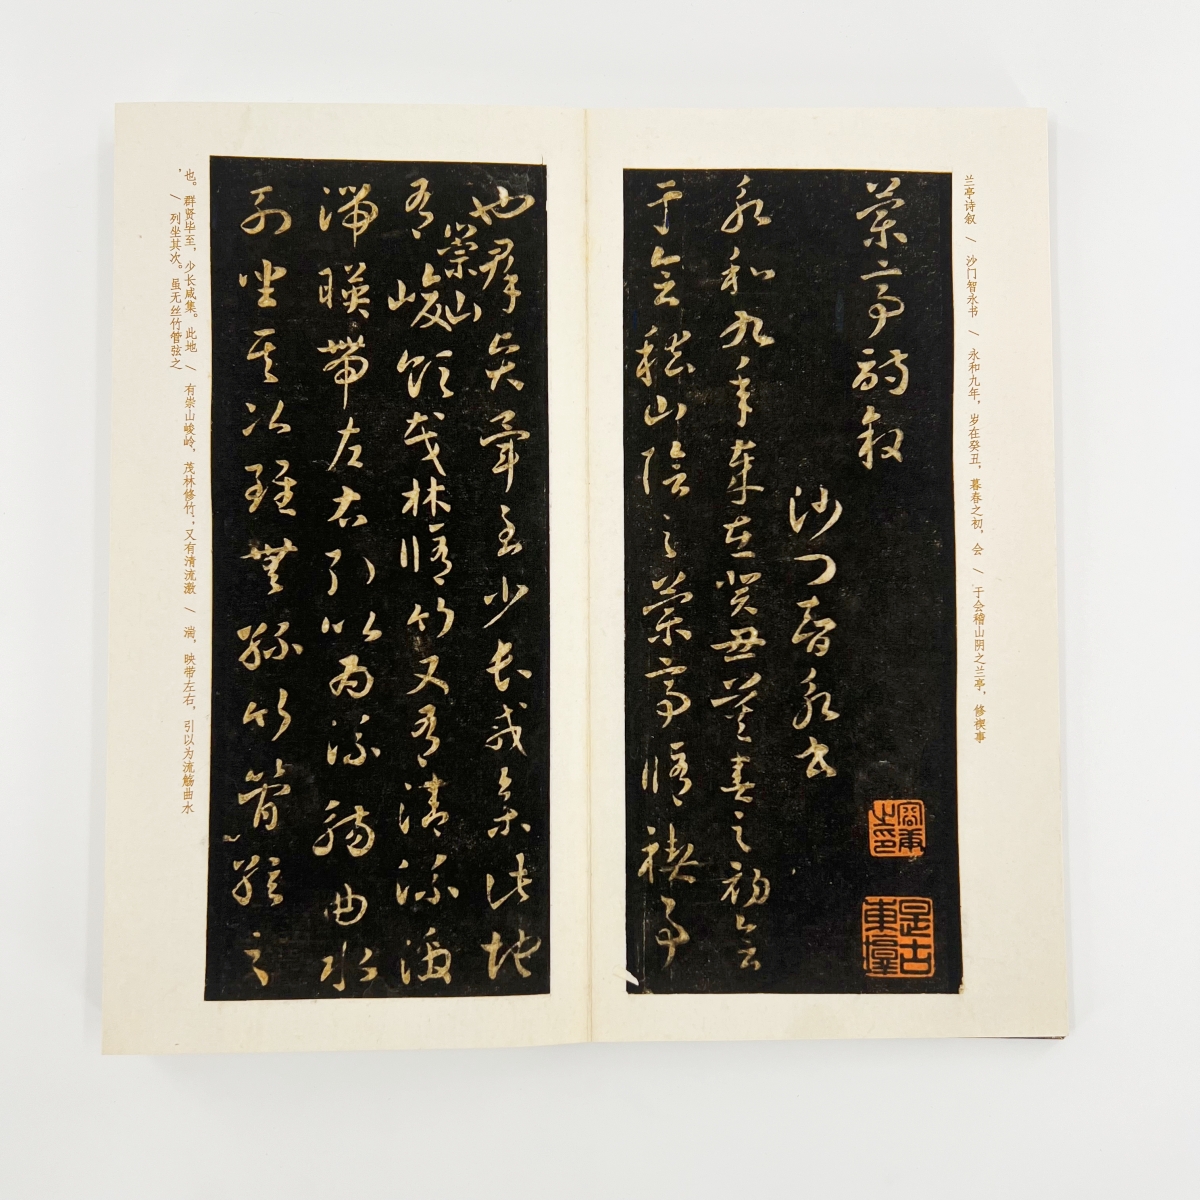 兰亭诗叙 / 沙门智永书 / 永和九年，岁在癸丑，暮春之初，会 / 于会稽山阴之兰亭，修禊事
蘭亭詩叙
沙門智永書
永和九年歲在癸丑暮春之初會
于會稽山陰之蘭亭脩禊事
也羣賢畢至少長咸集此地
有崇山峻領茂林脩竹又有清流激
湍暎帶左右引以為流觴曲水
列坐其次雖無絲竹管絃之
也。群贤毕至，少长咸集。此地 / 有崇山峻岭，茂林修竹；又有清流激 / 湍，映带左右，引以为流觞曲水
， / 列坐其次。虽无丝竹管弦之